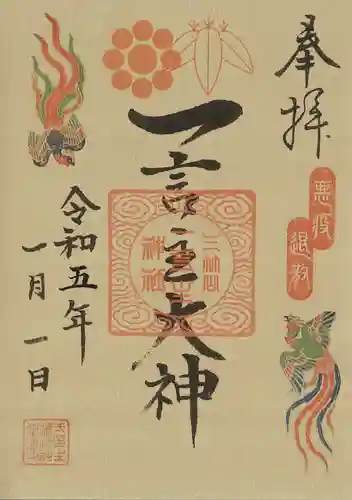 奉拝
悪疫
退散
一言主大神
令和五年
一月一日